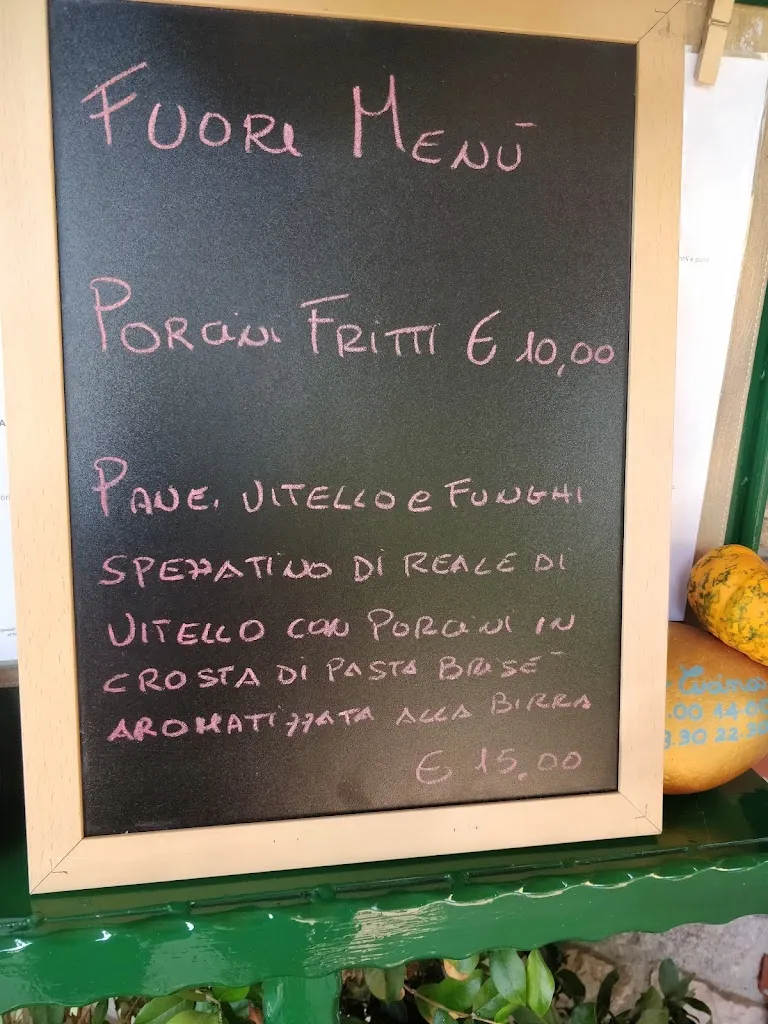 FUORI MENÙ
PORCINI FRITTI € 10,00
PANE, VITELLO e FUNGHI
SPEZZATINO DI REALE DI
VITELLO CON PORCINI IN
CROSTA DI PASTA BRISÉ
AROMATIZZATA ALLA BIRRA
€ 15,00
Cucina
.00 14.00
.30 22.30